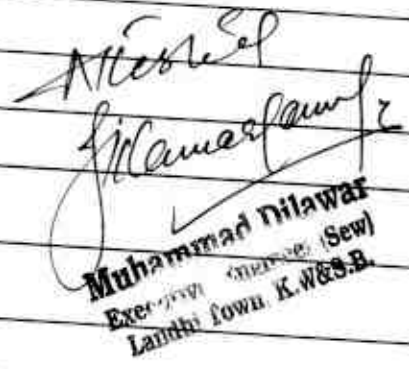 Attested
Muhammad Dilawar
Executive Engineer (Sew)
Landhi Town K.W&S.B.